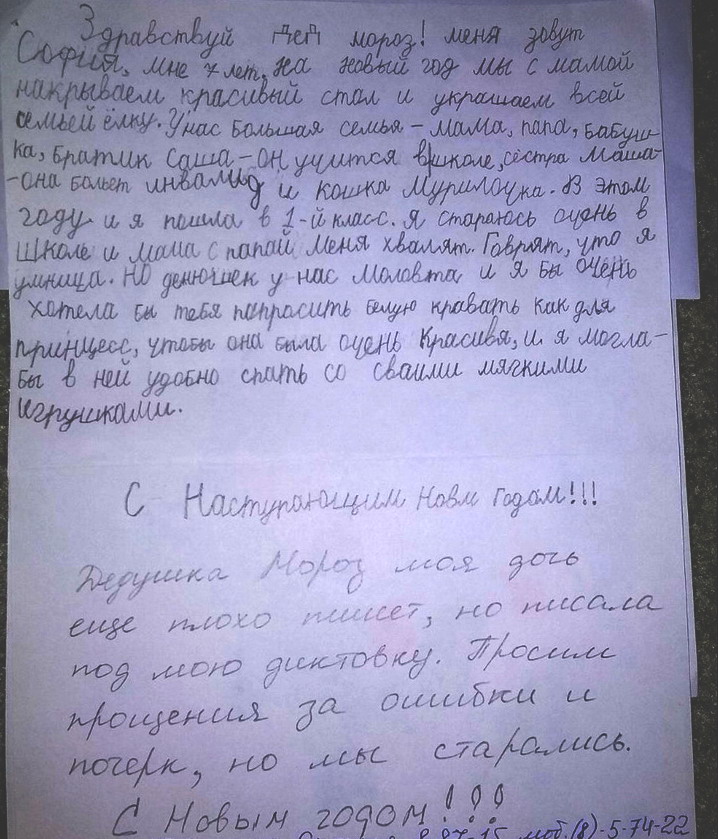 Здравствуй Дед мороз! меня зовут
София, мне 7 лет, на новый год мы с мамой
накрываем красивый стал и украшаем всей
семьей ёлку. У нас большая семья – мама, папа, бабуш-
ка, братик Саша – он учится вшколе, сестра Маша-
-она бальет инвалид и кошка Мурилочка. В этом
году и я пошла в 1-й класс. Я стараюсь очень в
школе и мама с папай меня хвалят. Говрят, что я
умница. Но денюшек у нас маловта и я бы очень
хотела бы тебя папрасить белую кравать как для
принцесс, чтобы она была очень красивя, и я могла-
бы в ней удобно спать со сваими мягкими
игрушками.
С Наступающим Новм Годом!!!
Дедушка Мороз моя дочь
еще плохо пишет, но писала
под мою диктовку. Просим
прощения за ошибки и
почерк, но мы старались.
С Новым годом!!!
моб.(8)-5-74-22